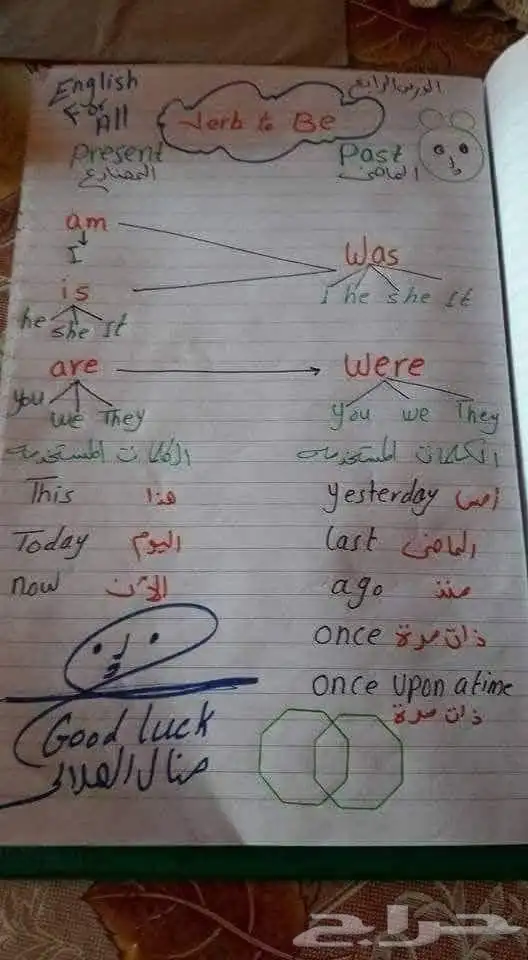 English
For
All
الدرس الرابع
Verb to Be
Present
Past
المضارع
الماضى
am
I
Was
is
I he she It
he she It
are
Were
you we They
you we They
الكلمات المستخدمة
الكلمات المستخدمة
This هذا
yesterday امس
Today اليوم
last الماضى
now الآن
ago منذ
once ذات مرة
once upon a time
ذات مرة
Good luck
منال الهلالى
حراج